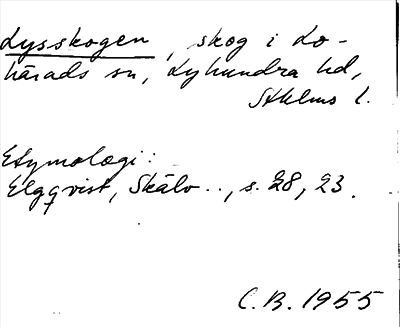 Lysskogen, skog i Lo-
härads sn, Lyhundra hd,
Sthlms l.
Etymologi:
Elgqvist, Skälv.., s. 28, 23.
C.B. 1955